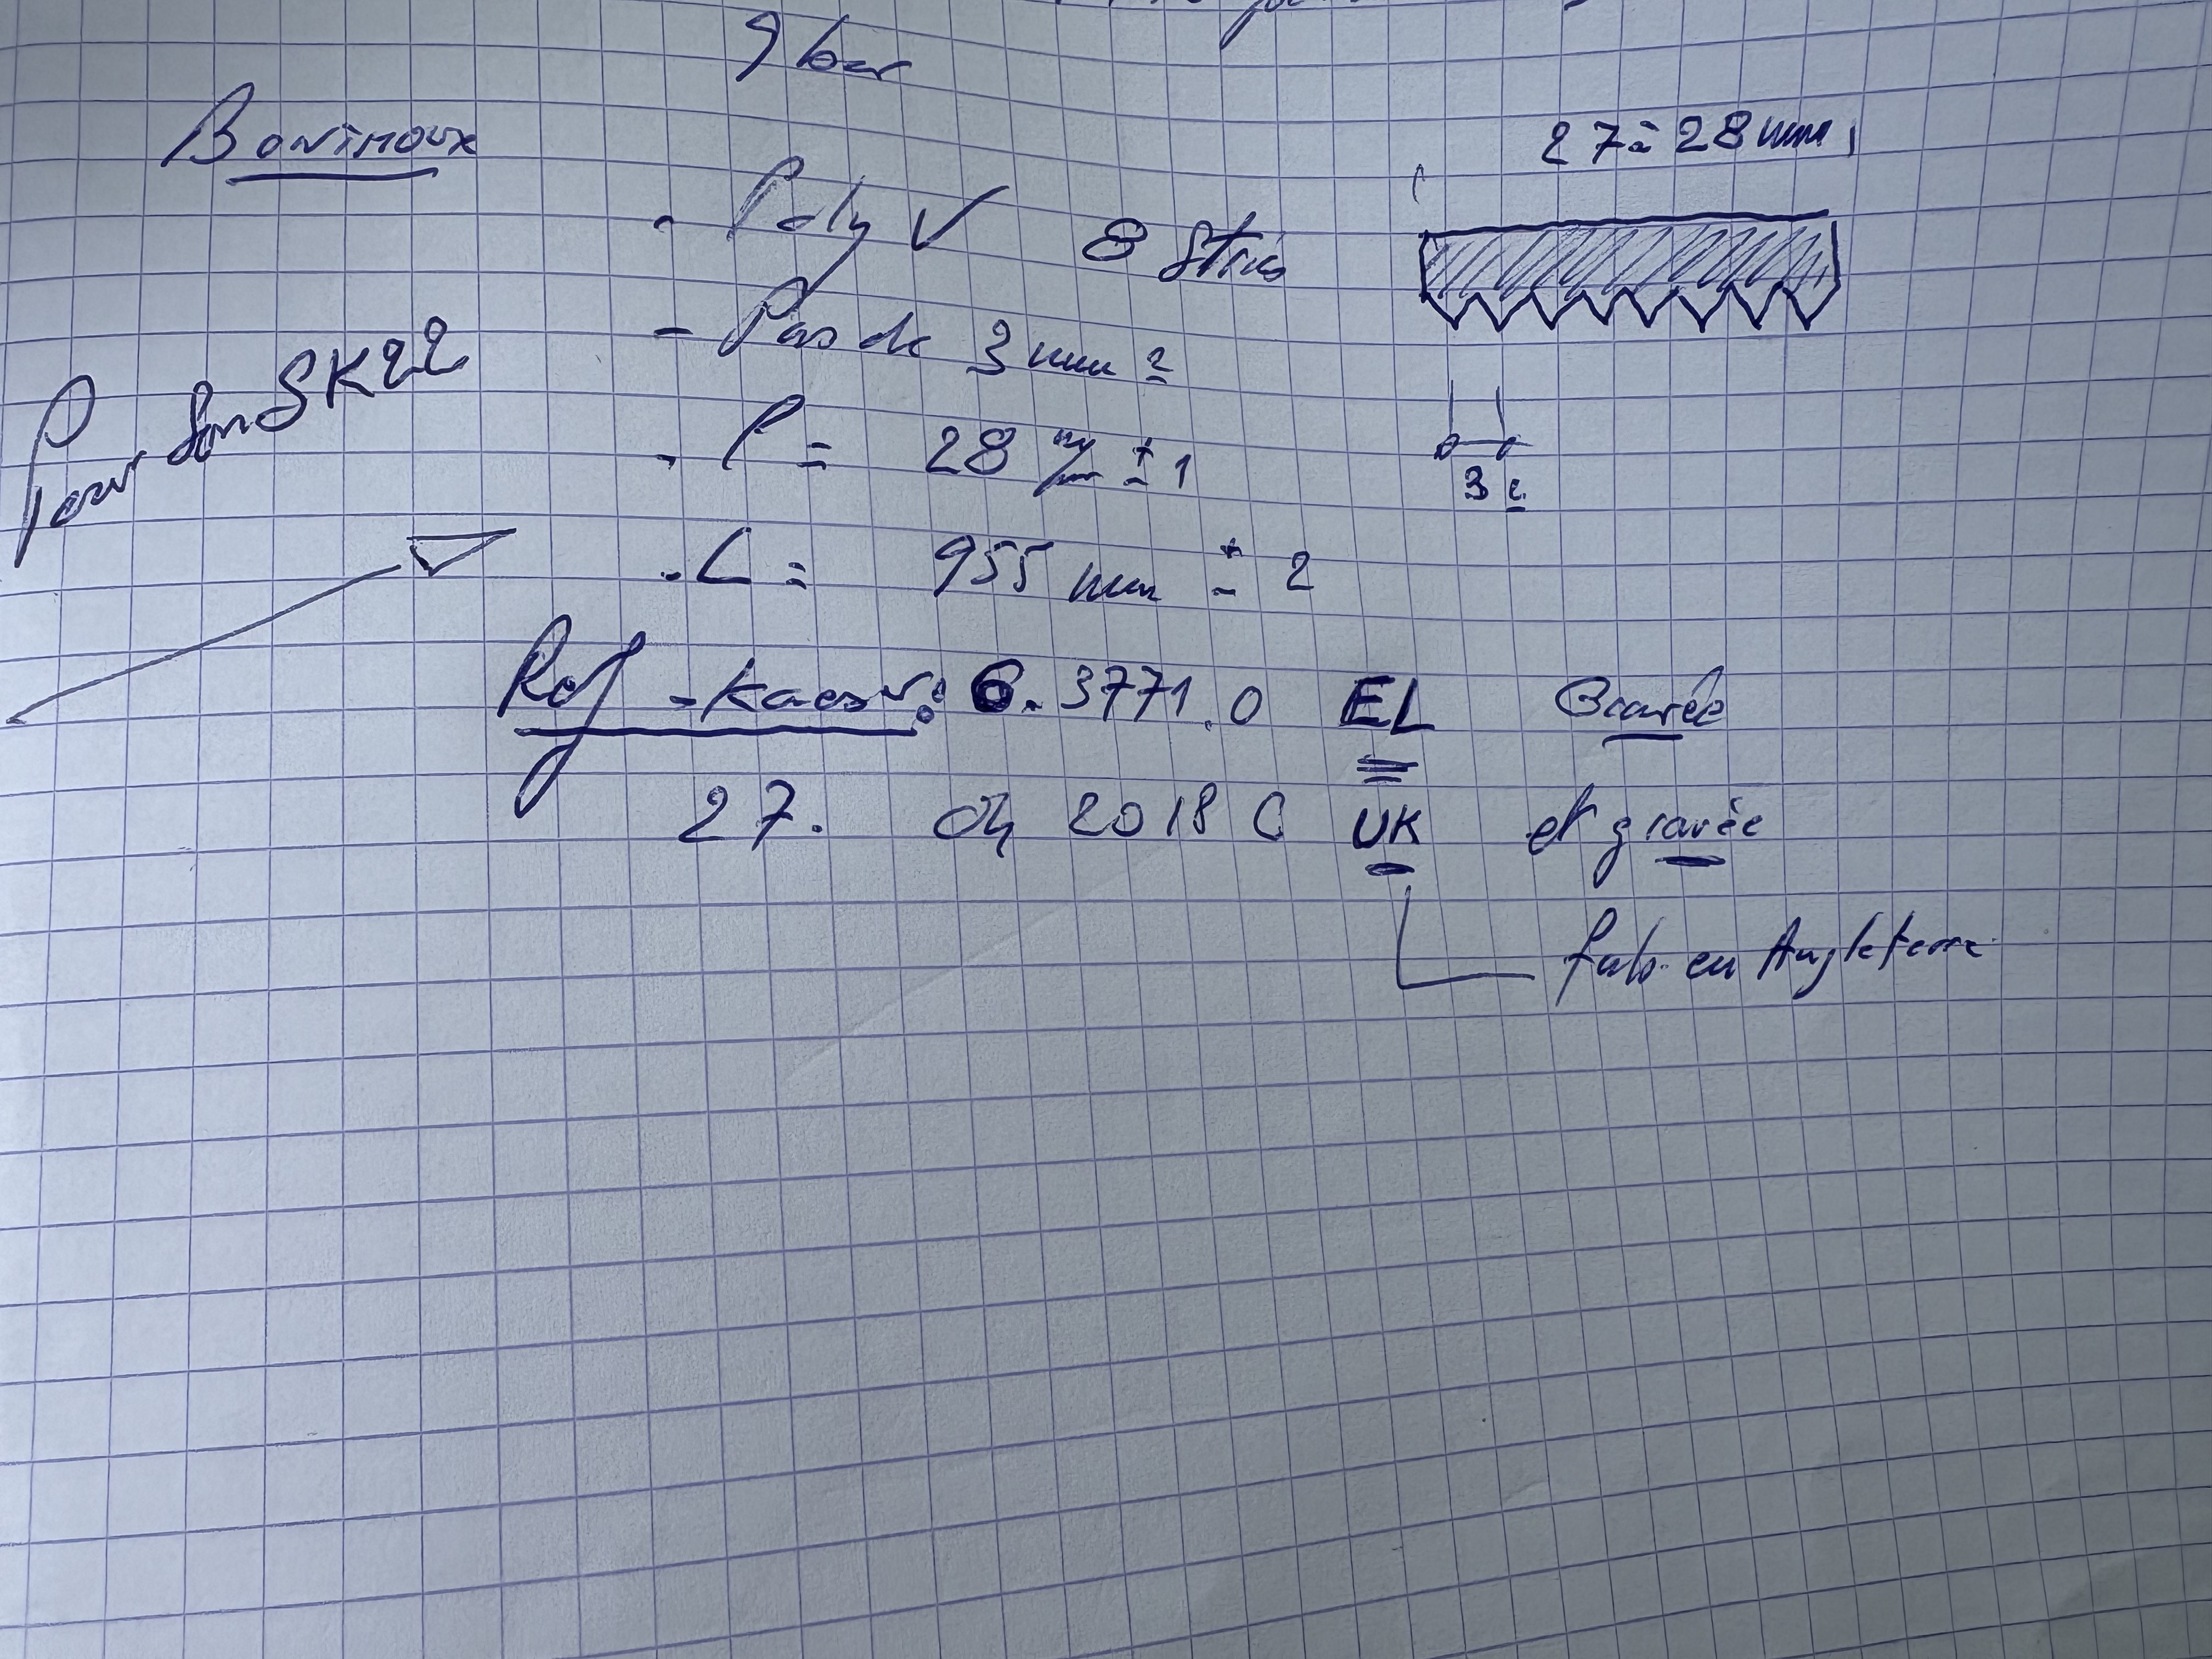 9 bar
Bontinoux
27 à 28 mm
- Poly V 8 Stries
- Pas de 3 mm 2
Pour son SK22
- l = 28 m/m ± 1
3 2
- L = 955 mm ± 2
Ref - Kaeser : 6.3771.0 EL
27. 04 2018 C UK et gravée
fab. en Angleterre